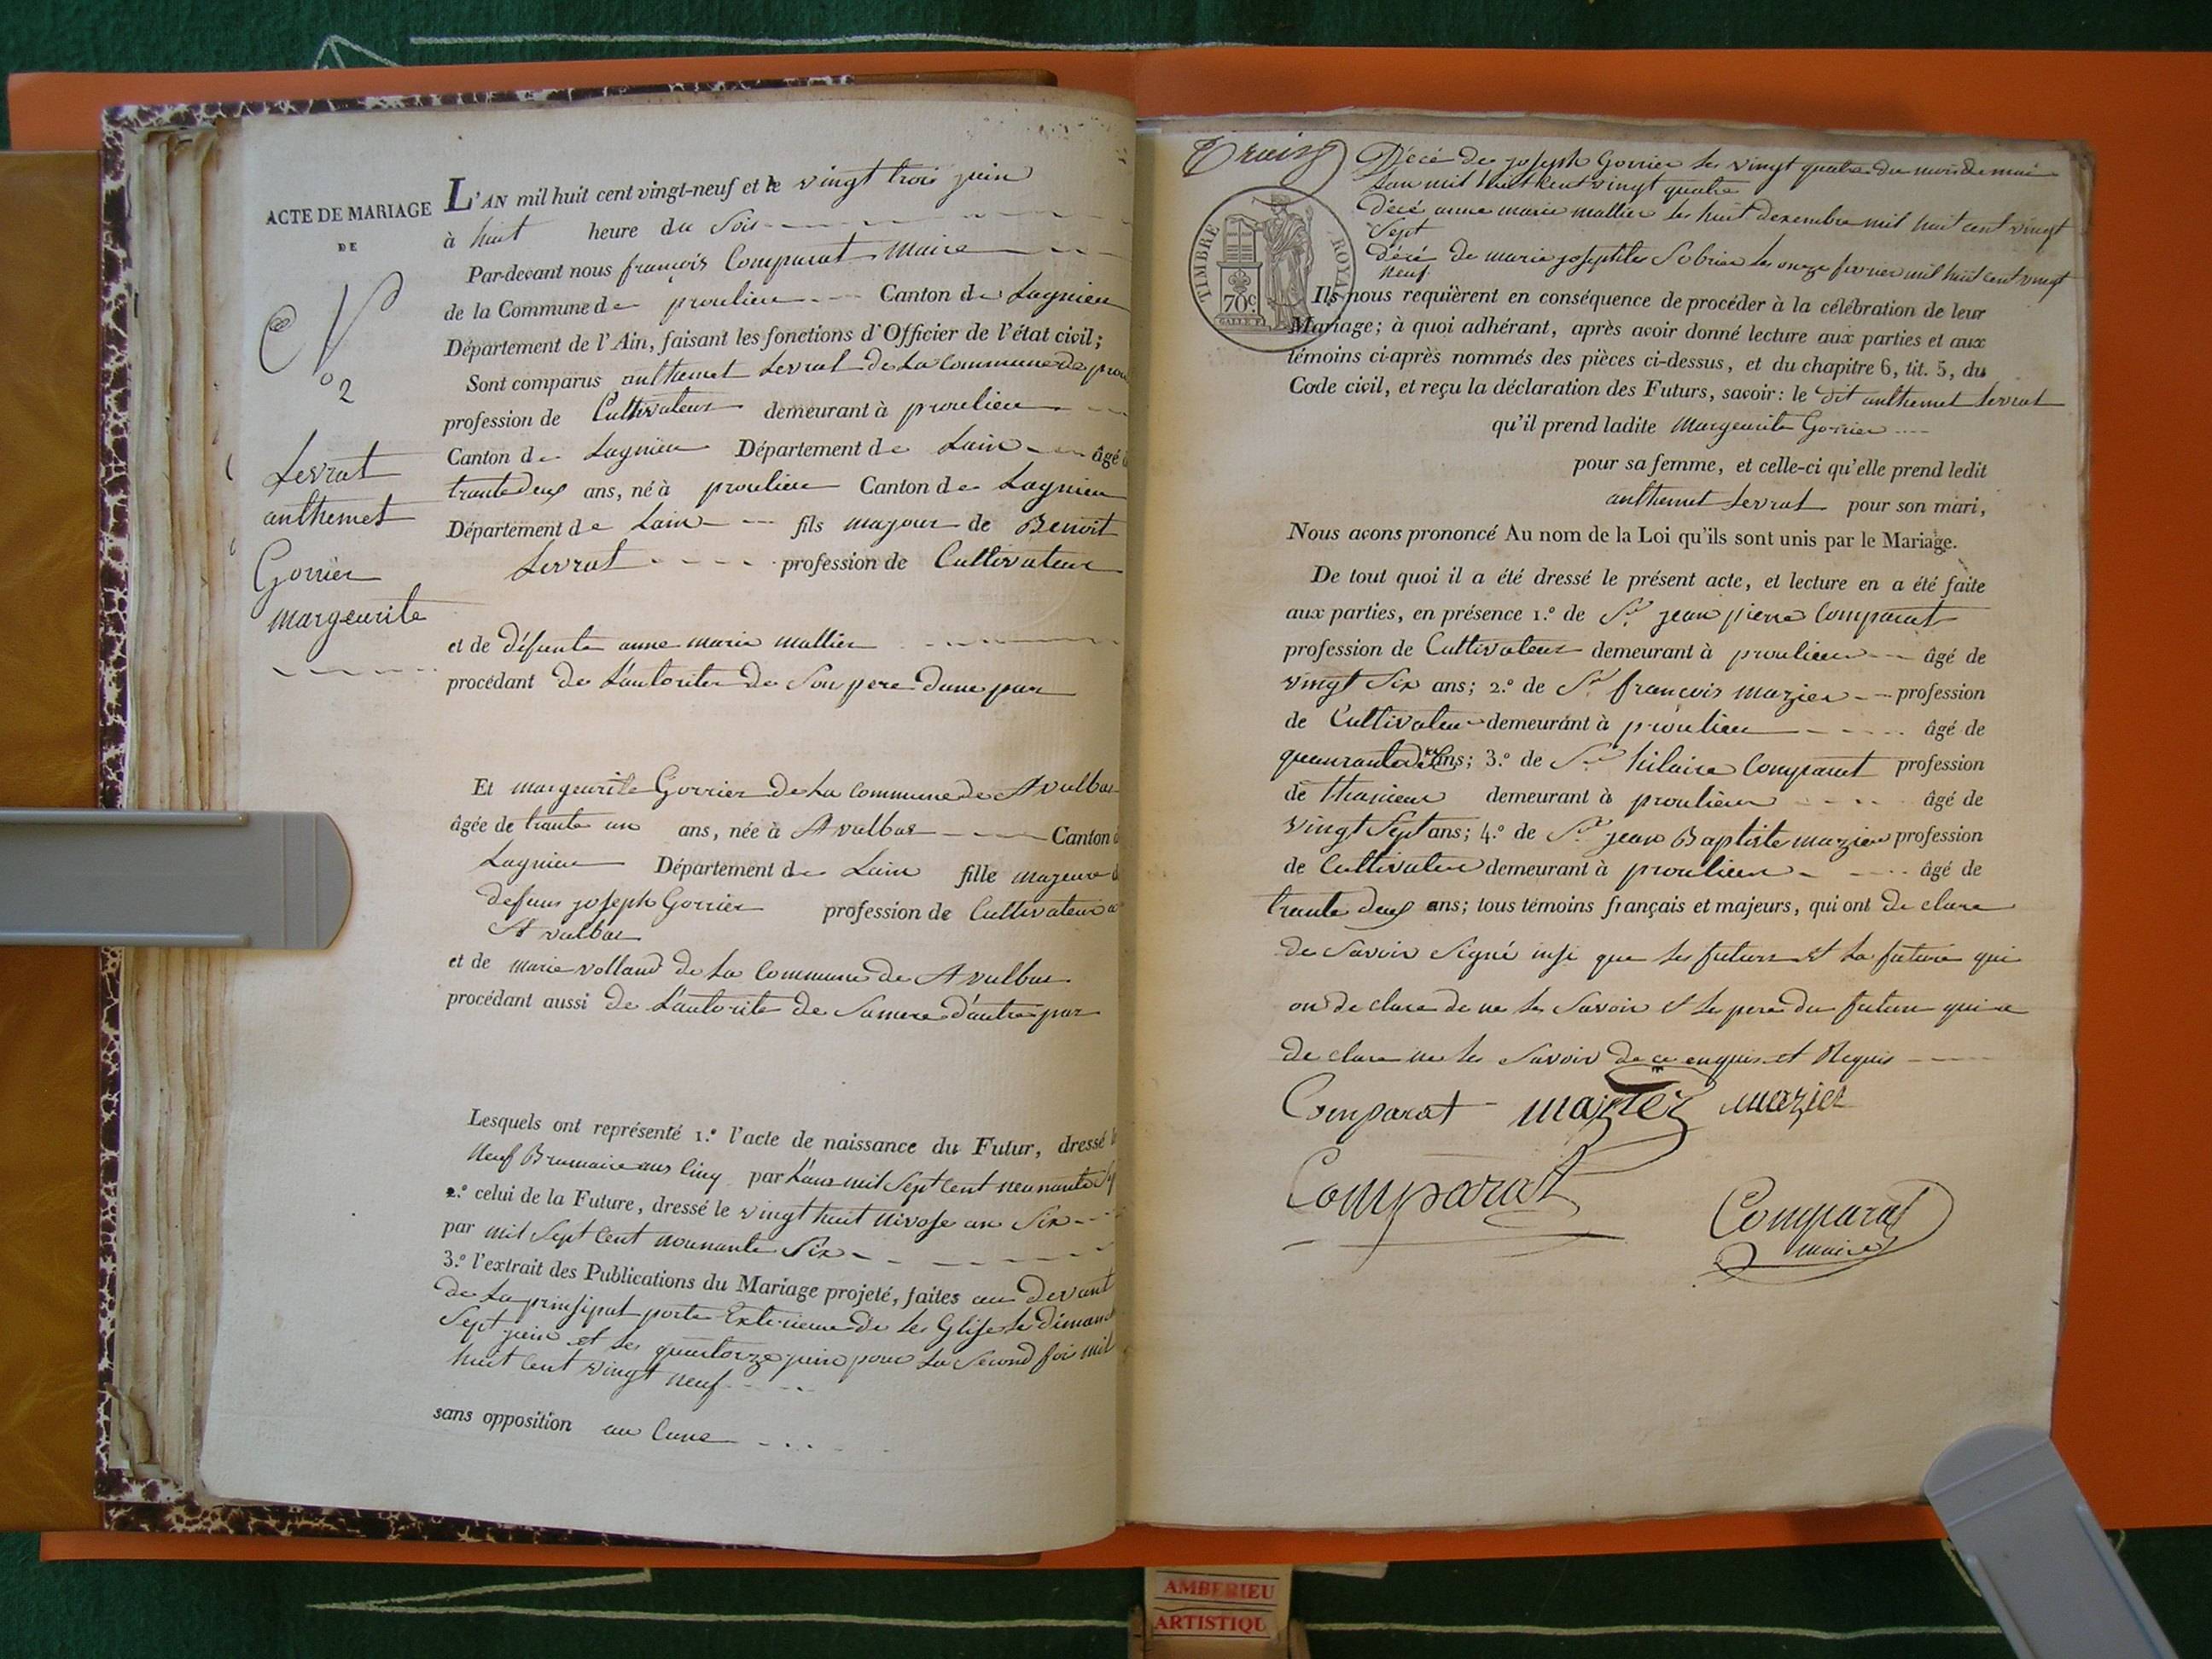 ACTE DE MARIAGE
DE
N
° 2
Levrat
anthemet
Gorrier
margeurite
L'AN mil huit cent vingt-neuf et le vingt trois juin
à huit heure du Soir
Par-devant nous françois Comparat Maire
de la Commune de proulieu Canton de Lagnieu
Département de l'Ain, faisant les fonctions d'Officier de l'état civil;
Sont comparus anthemet Levrat de La Commune de prou
profession de Cultivateur demeurant à proulieu
Canton de Lagnieu Département de Lain âgé
trante deux ans, né à proulieu Canton de Lagnieu
Département de Lain fils majour de Benoit
Levrat profession de Cultivateur
et de défunte anne marie mallier
procédant de L'autorite de Son pere dune par
Et margeurite Gorrier de La commune de St vulbas
âgée de trante un ans, née à St vulbas Canton
Lagnieu Département de Lain fille majeure
defuns joseph Gorrier profession de Cultivateur a
St vulbas
et de marie volland de La Commune de St vulbas
procédant aussi de L'autorite de Samere d'autre par
Lesquels ont représenté 1.° l'acte de naissance du Futur, dressé
Neuf Brumaire ans Cinq par L'ans mil Sept Cent neunante
2.° celui de la Future, dressé le vingt huit nivose an Six
par mil Sept Cent nounante Six
3.° l'extrait des Publications du Mariage projeté, faites au devant
de La prinsipal porte Exterieure de Les Glise Le dimanch
Sept juin et Les quatorze juin pour La Second foi mil
huit Cent vingt neuf
sans opposition au Cune
Décé de joseph Gorrier Les vingt quatre du mois de mai
Lan mil huit Cent vingt quatre
Décé anne marie mallier Les huit desembre mil huit cent vingt
Sept
Décé de marie josephtes Sobrier Les onze fevrier mil huit cent vingt
neuf
TIMBRE ROYAL
70c.
Ils nous requièrent en conséquence de procéder à la célébration de leur
Mariage; à quoi adhérant, après avoir donné lecture aux parties et aux
témoins ci-après nommés des pièces ci-dessus, et du chapitre 6, tit. 5, du
Code civil, et reçu la déclaration des Futurs, savoir: le dit anthemet Levrat
qu'il prend ladite Margeurite Gorrier
pour sa femme, et celle-ci qu'elle prend ledit
anthemet Levrat pour son mari,
Nous avons prononcé Au nom de la Loi qu'ils sont unis par le Mariage.
De tout quoi il a été dressé le présent acte, et lecture en a été faite
aux parties, en présence 1.° de Sr jean pierre Comparat
profession de Cultivateur demeurant à proulieu âgé de
vingt Six ans; 2.° de Sr françois mazier profession
de Cultivateur demeurant à proulieu âgé de
ans; 3.° de Sr hilaire Comparat profession
de demeurant à proulieu âgé de
vingt Sept ans; 4.° de Sr jean Baptiste mazier profession
de Cultivateur demeurant à proulieu âgé de
trante deux ans; tous témoins français et majeurs, qui ont de clare
de Savoir Signé insi que Les futurs et La future qui
on de clare de ne Les Savoir et Les pere du futur qui a
de clare ne Les Savoir de ce enquis et Requis
Comparat mazier mazier
Comparat
Comparat
maire
AMBERIEU
ARTISTIQU